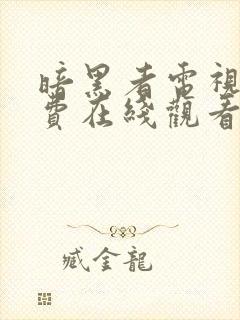 暗黑者電視
費在綫觀看
臧金龍